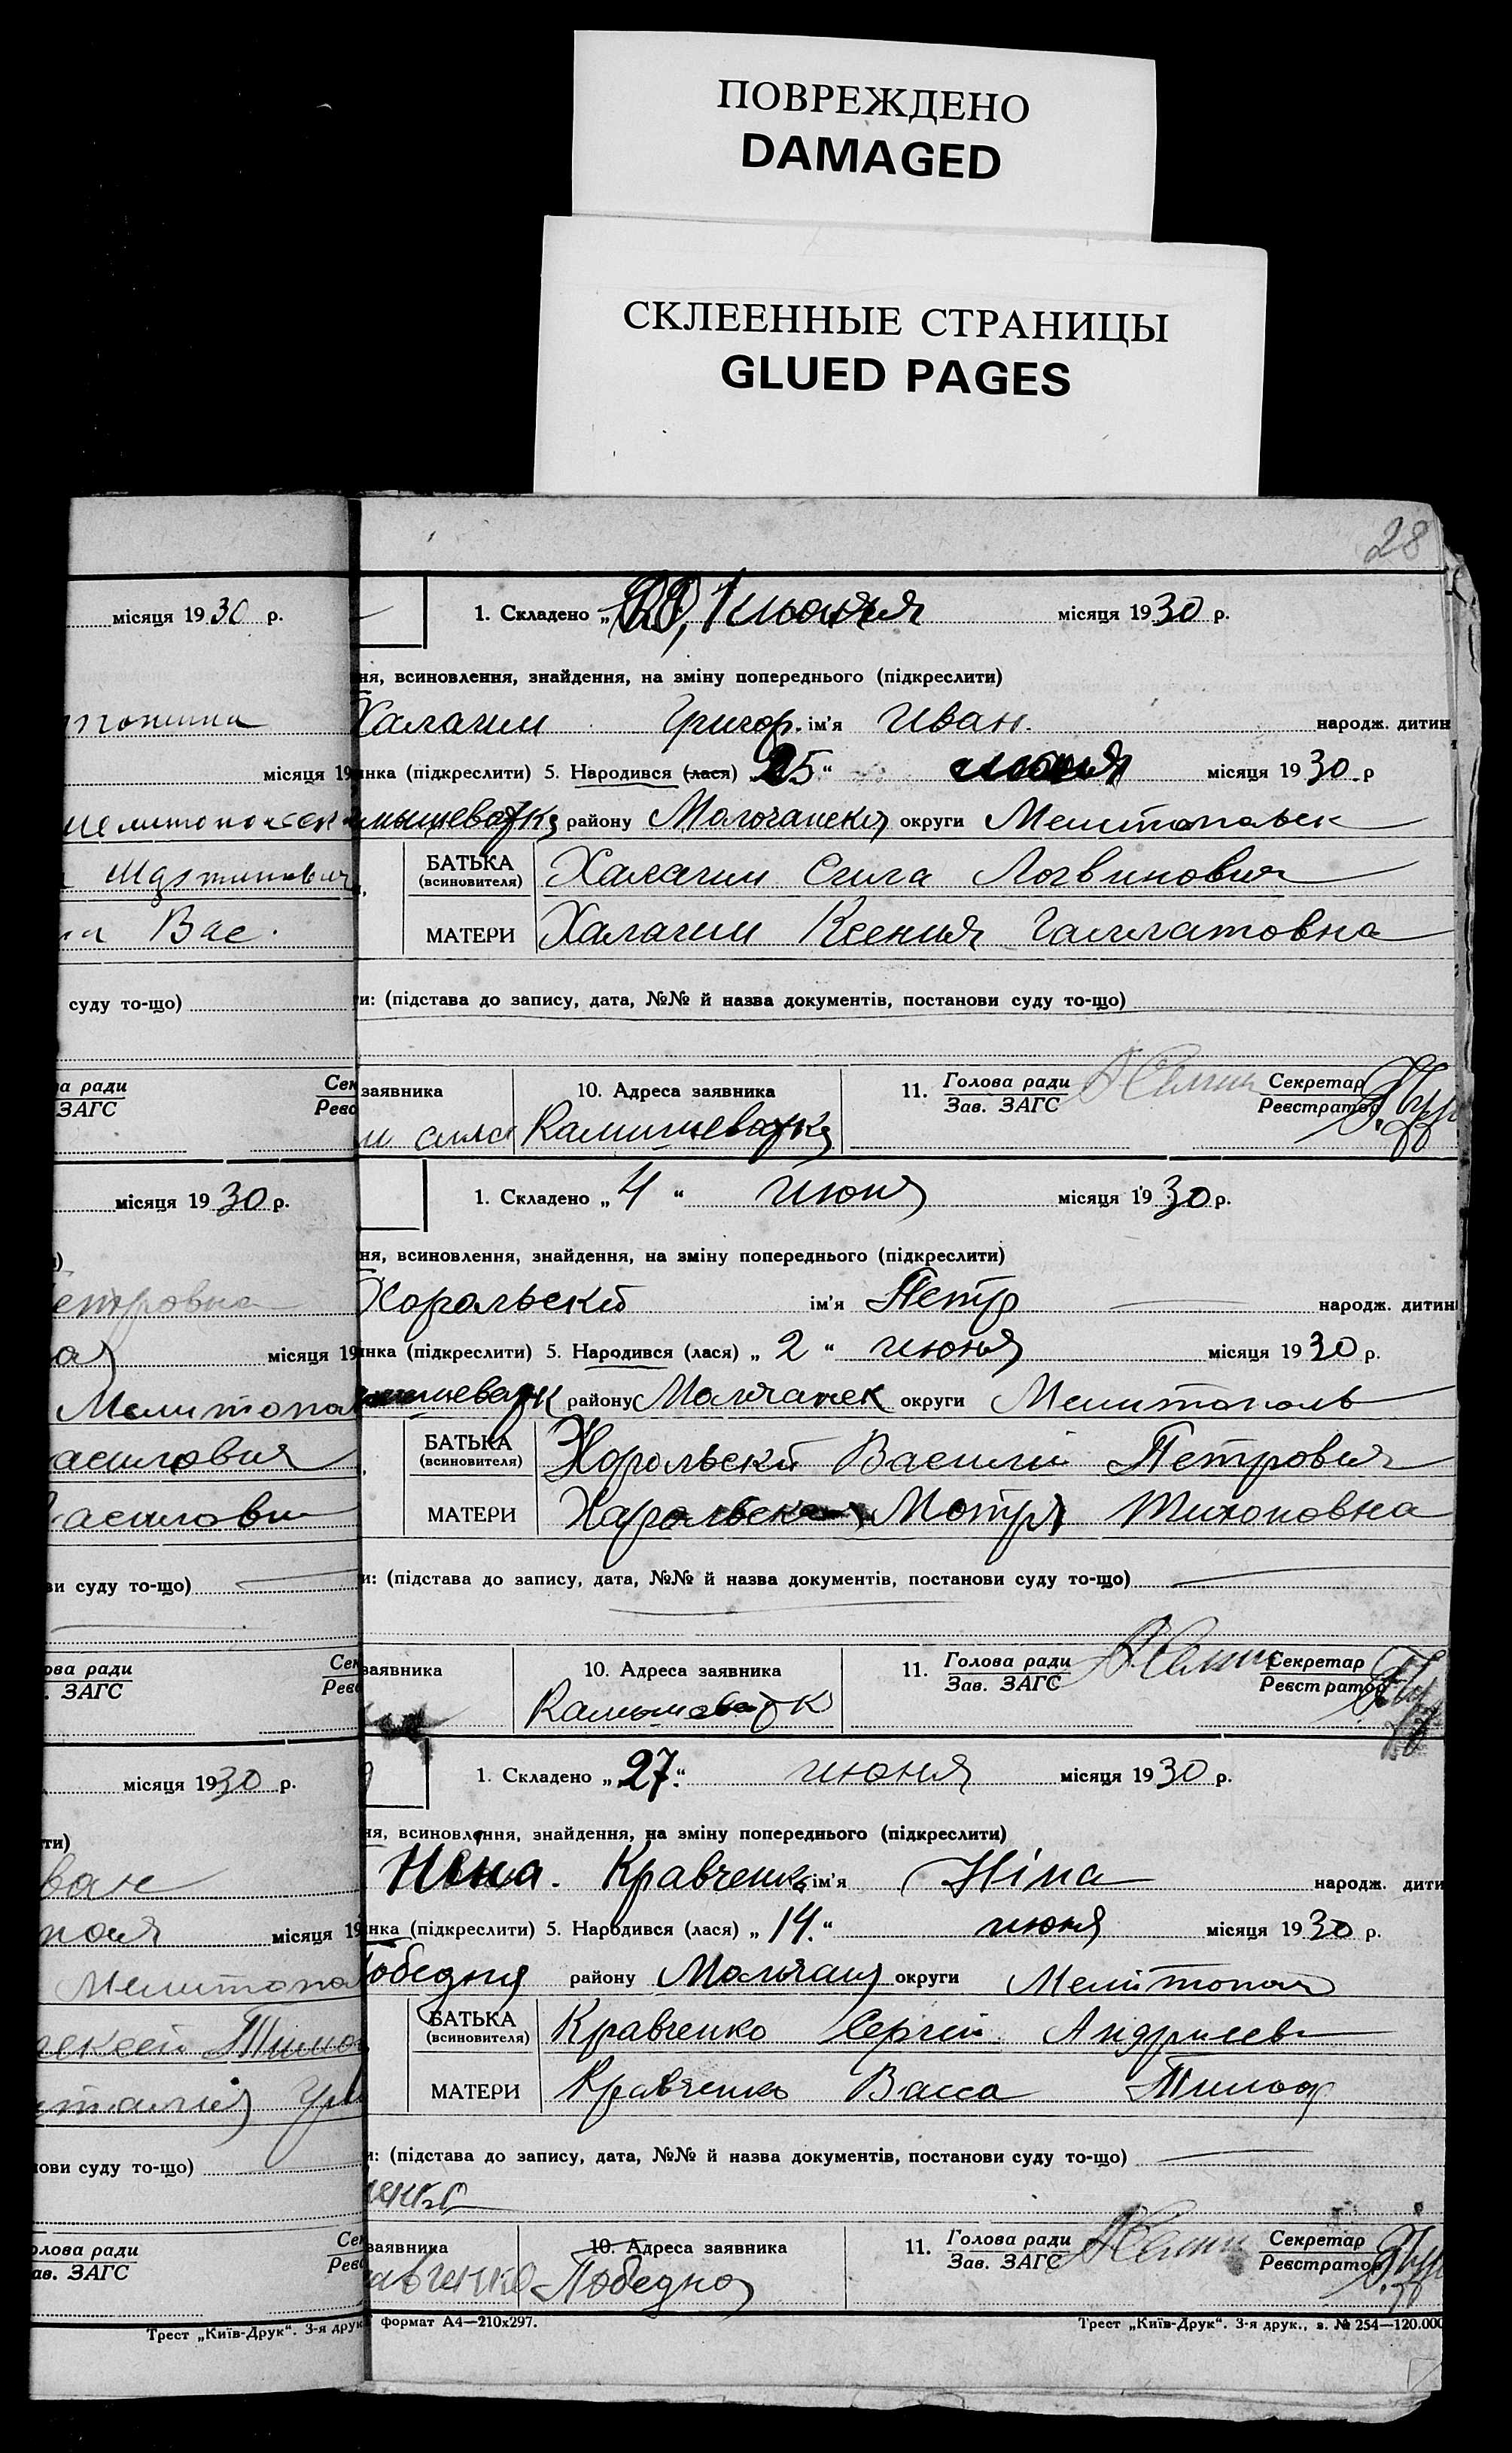 ПОВРЕЖДЕНО
DAMAGED
СКЛЕЕННЫЕ СТРАНИЦЫ
GLUED PAGES
28
місяця 1930 р.
місяця 19
Мелитопольск
Вас.
суду то-що)
ради
ЗАГС
місяця 1930 р.
етровна
місяця 19
Мелитопо
асилович
суду то-що)
ова ради
. ЗАГС
місяця 1930 р.
ти)
ван
місяця 19
Мелитопо
нови суду то-що)
олова ради
ав. ЗАГС
Трест „Київ-Друк“. 3-я друк
1. Складено „ июня місяця 1930 р.
ня, всиновлення, знайдення, на зміну попереднього (підкреслити)
Халагим Григор. ім'я Иван. народж. дитин
инка (підкреслити) 5. Народився (лася) 25“ июня місяця 1930 р
мышеватка району Молочанска округи Мелитопольск
БАТЬКА
(всиновителя)
Халагим Сила Логвинович
МАТЕРИ Халагим Ксения
ти: (підстава до запису, дата, №№ й назва документів, постанови суду то-що)
заявника 10. Адреса заявника 11. Голова ради Секретар
Зав. ЗАГС Реєстратор
Камишеватка
1. Складено „4“ июня місяця 1930 р.
ня, всиновлення, знайдення, на зміну попереднього (підкреслити)
Хорольский ім'я Петр народж. дитин
инка (підкреслити) 5. Народився (лася) „2“ июня місяця 1930 р.
мышеватк району Молочанск округи Мелитополь
БАТЬКА
(всиновителя)
Хорольский Василий Петрович
МАТЕРИ Харольская Мотря Тихоновна
и: (підстава до запису, дата, №№ й назва документів, постанови суду то-що)
заявника 10. Адреса заявника 11. Голова ради Секретар
Зав. ЗАГС Реєстратор
Камышеватк
1. Складено „27.“ июня місяця 1930 р.
ня, всиновлення, знайдення, на зміну попереднього (підкреслити)
Ніна. Кравченко ім'я Ніна народж. дити
инка (підкреслити) 5. Народився (лася) „14.“ июня місяця 1930 р.
обедня району Молочан округи Мелітопол
БАТЬКА
(всиновителя)
Кравченко Сергій Андреев
МАТЕРИ Кравченко Васса Тимоф
и: (підстава до запису, дата, №№ й назва документів, постанови суду то-що)
заявника 10. Адреса заявника 11. Голова ради Секретар
Зав. ЗАГС Реєстратор
авченко Победна
формат А4—210х297. Трест „Київ-Друк“. 3-я друк., з. № 254—120.000